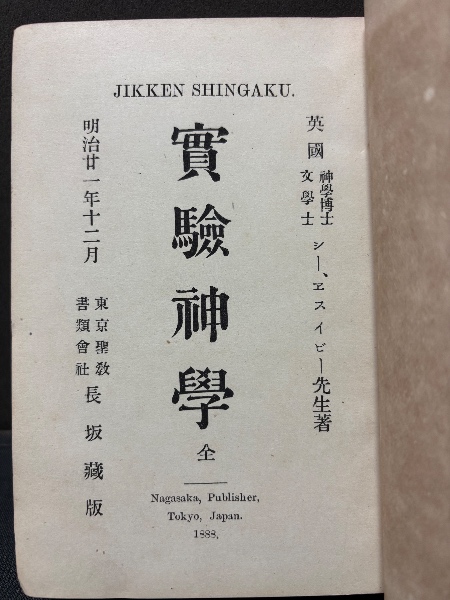 JIKKEN SHINGAKU.
英國
神學博士
文學士
シー、ヱスイビー先生著
實驗神學
全
明治廿一年十二月
東京聖敎
書類會社
長坂藏版
Nagasaka, Publisher,
Tokyo, Japan.
1888.